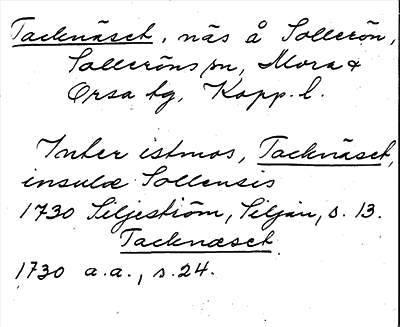 Tacknäset, näs å Sollerön,
Solleröns sn, Mora &
Orsa tg, Kopp. l.
Inter istmos, Tacknäset,
insulæ Sollensis
1730 Siljeström, Siljan, s. 13.
Tacknæset
1730 a.a., s. 24.